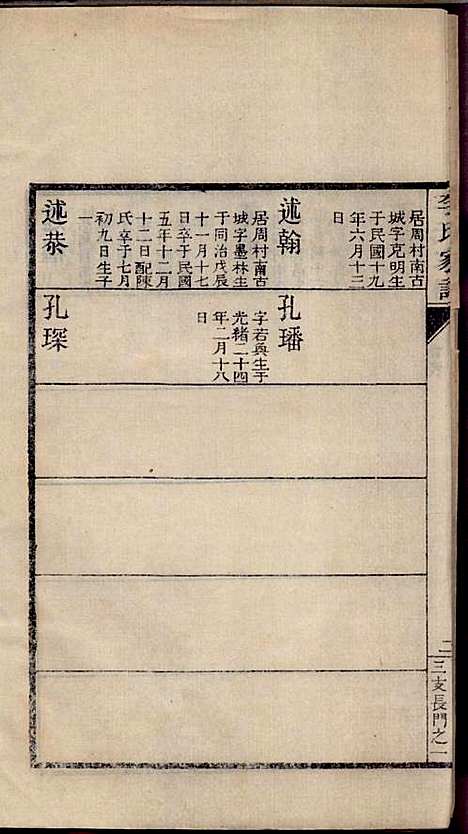 李氏家譜
二
三支長門之一
居周村南古
城字克明生
于民國十九
年六月十三
日
述翰
居周村南古
城字墨林生
于同治戊辰
十一月十七
日卒于民國
五年十二月
十二日配陳
氏卒于七月
初九日生子
一
述恭
孔璠
字若生于
光緒二十四
年二月十八
日
孔琛